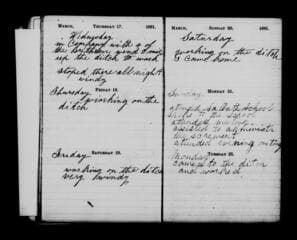 MARCH, THURSDAY 17. 1881.
Wednesday
in Company with 4 of
the brethren
up the ditch to work
stoped there all night
windy
FRIDAY 18.
Thursday
working on the
ditch
SATURDAY 19.
Friday
working on the ditch
very windy
MARCH, SUNDAY 20. 1881.
Saturday
working on the ditch
& Came home
MONDAY 21.
Sunday
Sabbath School
to the School
attended meeting
assisted to administer
sacrement
attended evening mtg
TUESDAY 22.
Monday
came to the ditch
and worked